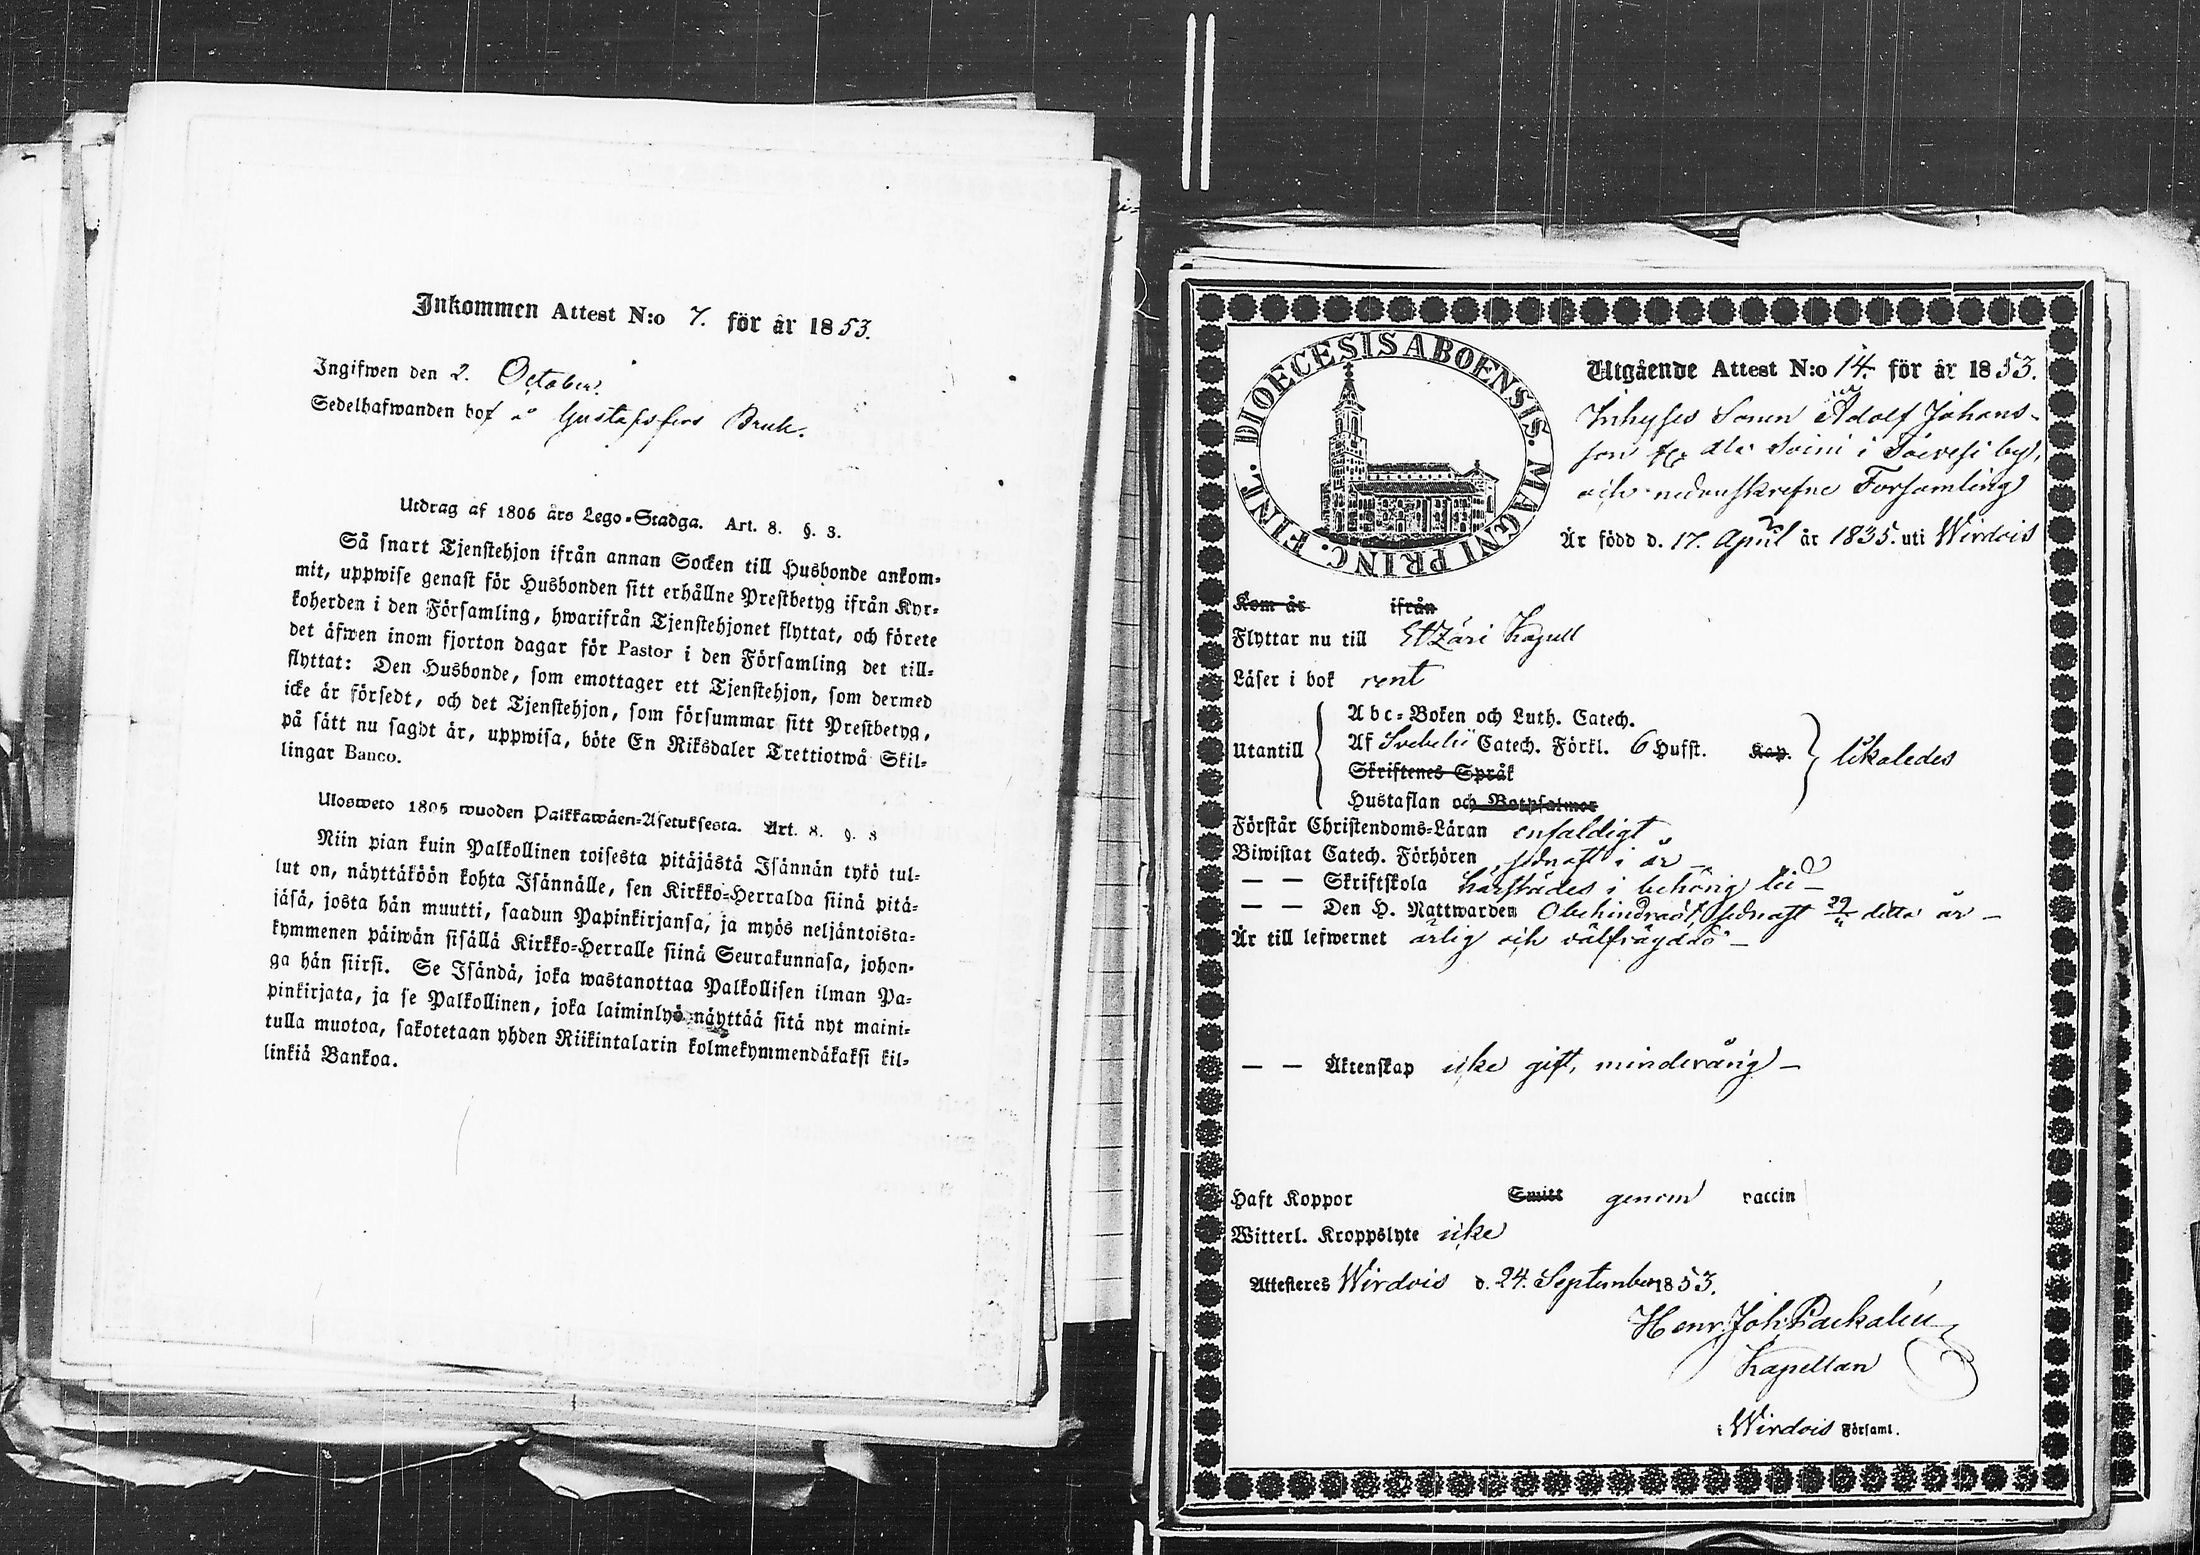 Inkommen Attest N:o 7. för år 1853.
Ingifwen den 2. October.
Sedelhafwanden bor å Gustafsfors Bruk.
Utdrag af 1806 års Lego-Stadga. Art. 8. §. 3.
Så snart Tjenstehjon ifrån annan Socken till Husbonde ankom-
mit, uppwise genast för Husbonden sitt erhållne Prestbetyg ifrån Kyr-
koherden i den Församling, hwarifrån Tjenstehjonet flyttat, och förete
det äfwen inom fjorton dagar för Pastor i den Församling det till-
flyttat: Den Husbonde, som emottager ett Tjenstehjon, som dermed
icke är försedt, och det Tjenstehjon, som försummar sitt Prestbetyg,
på sätt nu sagdt är, uppwisa, böte En Riksdaler Trettiotwå Skil-
lingar Banco.
Ulosweto 1805 wuoden Palkkawäen-Asetuksesta. Art. 8. §. 3
Niin pian kuin Palkollinen toisesta pitäjästä Isännän tykö tul-
lut on, näyttäköön kohta Isännälle, sen Kirkko-Herralda siinä pitä-
jäsä, josta hän muutti, saadun Papinkirjansa, ja myös neljäntoista-
kymmenen päiwän sisällä Kirkko-Herralle siinä Seurakunnasa, johon-
ga hän siirsi. Se Isändä, joka wastanottaa Palkollisen ilman Pa-
pinkirjata, ja se Palkollinen, joka laiminlyö näyttää sitä nyt maini-
tulla muotoa, sakotetaan yhden Riikintalarin kolmekymmendäkaksi kil-
linkiä Bankoa.
DIOECESIS ABOENSIS. MAGNI PRINC. FINL.
Utgående Attest N:o 14. för år 1853.
Inhyses Sonen Adolf Johans-
son Soini i by,
och nedanskrefne Församling
Är född d. 17. April år 1835. uti Wirdois
Kom år ifrån
Flyttar nu till Etzäri Kapell
Läser i bok rent
Abc-Boken och Luth. Catech.
Utantill Af Svebelii Catech. Förkl. 6 Hufst. Kap. likaledes
Skriftenes Språk
Hustaflan och Botpsalmer
Förstår Christendoms-Läran enfaldigt.
Biwistat Catech. Förhören sednast i år —
— — Skriftskola härstädes i behörig tid —
— — Den H. Nattwarden Obehindrad, sednast ditto år —
Är till lefwernet ärlig och välfrägdad —
— — Äktenskap icke gift, minderårig —
Haft Koppor Smitt genom vaccin
Witterl. Kroppslyte icke
Attesteres Wirdois d. 24. September 1853.
Henr. Joh.
Kapellan
i Wirdois Församl.